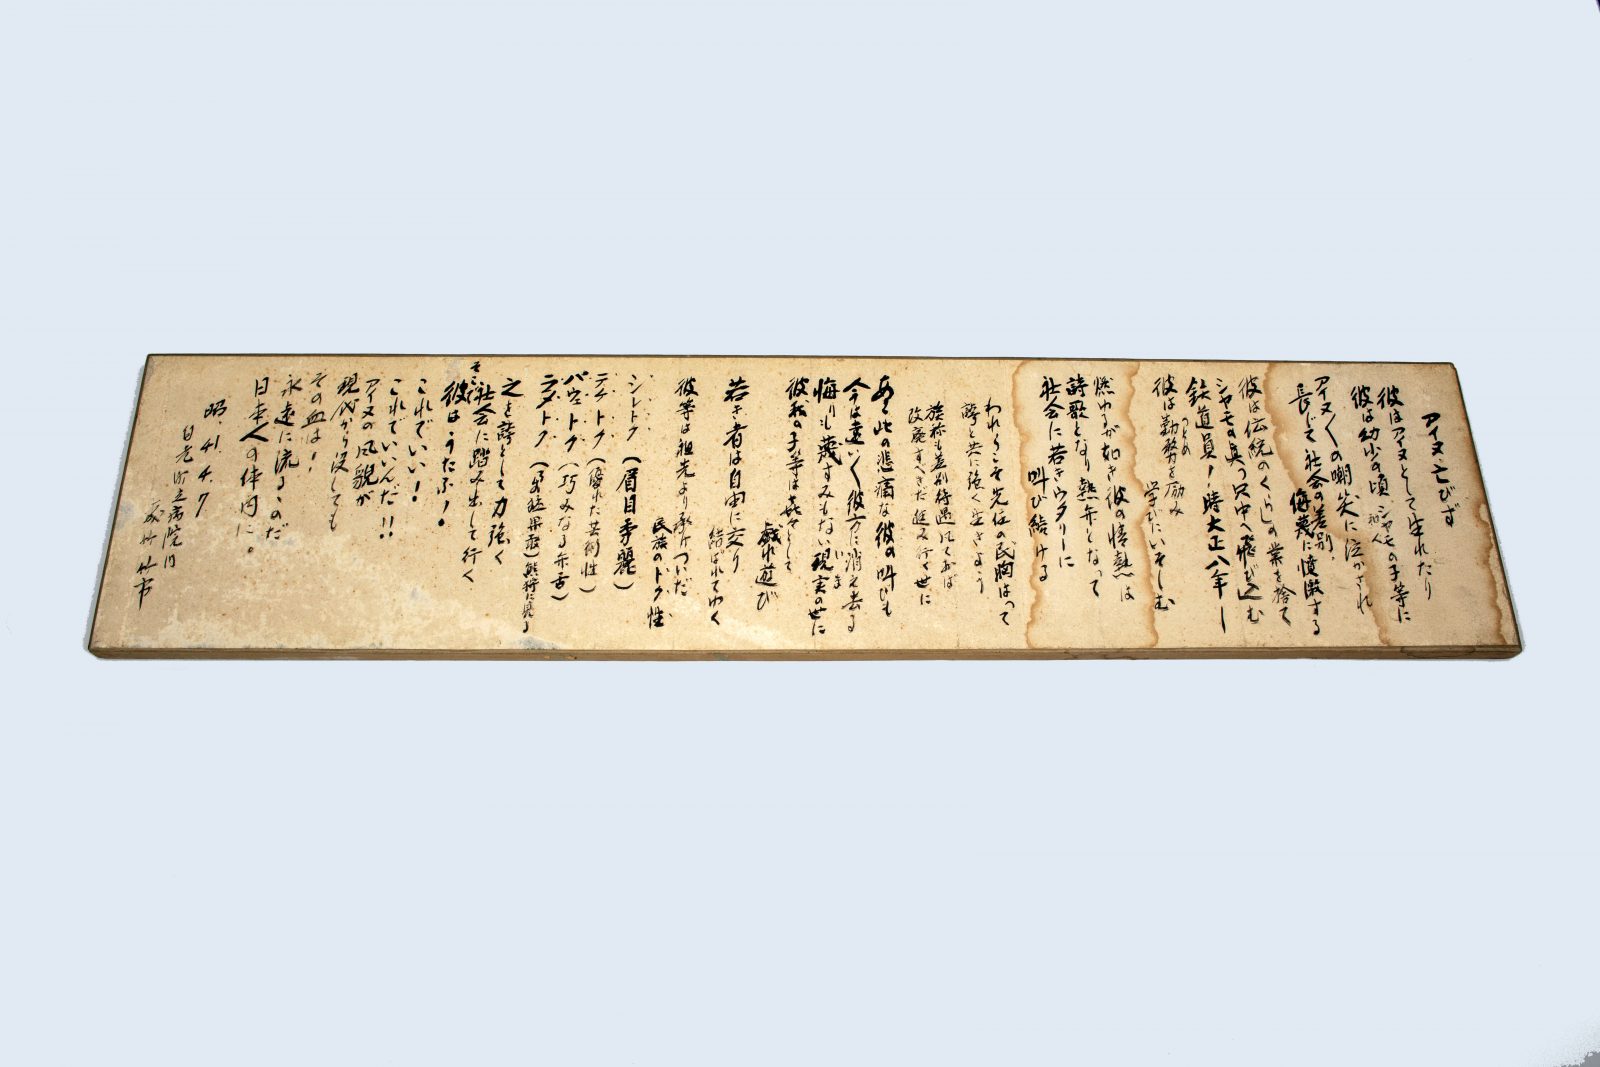 アイヌ・亡びず
彼はアイヌとして生れたり
彼は幼少の頃、シャモの子等に
和人
アイヌ〱の嘲笑に泣かされ
長じて社会の差別
侮蔑に憤激する
彼は伝統のくらしの業を捨て
シャモの真っ只中へ飛び込む
鉄道員！時大正八年－
つとめ
彼は勤務を励み
学びにいそしむ
燃ゆるが如き彼の情熱は
詩歌となり熱弁となって
社会に若きウタリーに
叫び続ける
われらこそ先住の民胸はって
誇と共に強く生きよう
族称も差別待遇
改廃すべきだ進み行く世に
あゝ此の悲痛な彼の叫びも
今は遠い〱彼方に消え去る
いま
侮りも蔑すみもない現実の世に
彼我の子等は喜々として
戯れ遊び
若き者は自由に交り
結ばれてゆく
彼等は祖先より承けついだ
民族のトク性
シレトク（眉目秀麗）
テケトク（優れた芸術性）
パウェトク（巧みなる弁舌）
ラメトク（勇猛果敢）熊狩に見る
之を誇として力強く
社会に踏み出して行く
彼は・うたふ！
これでいい！
これでいいんだ！！
アイヌの風貌が
現代から没しても
その血は！
永遠に流るゝのだ
日本人の体内に。
昭・41・4・7
白老町立病院内
竹市